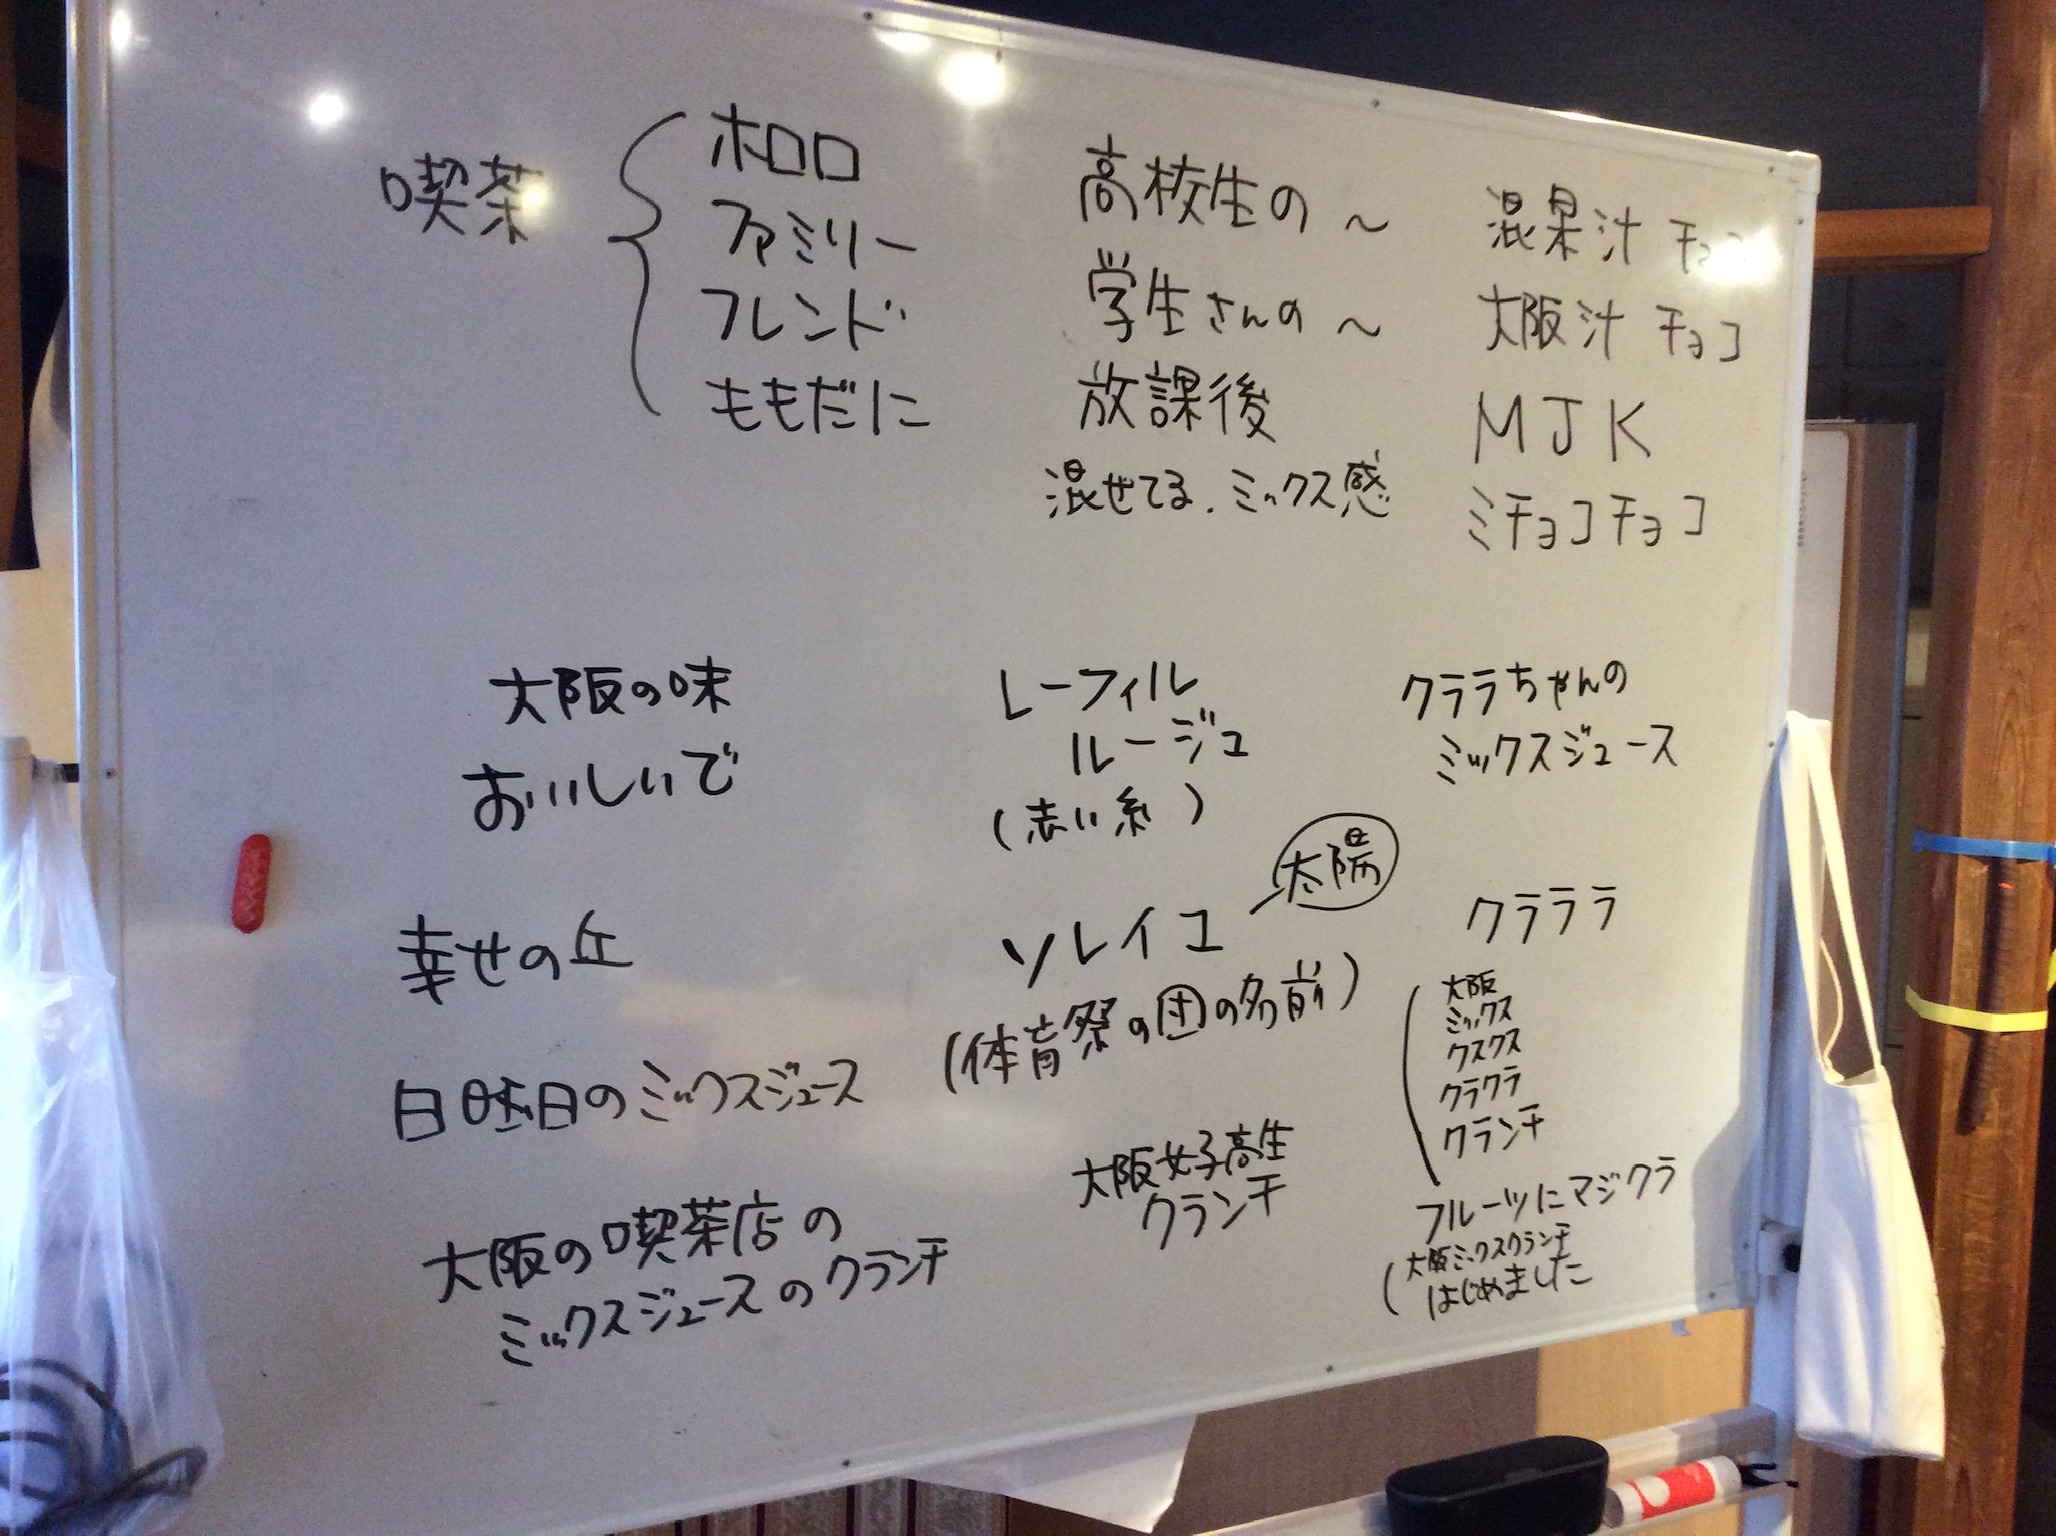 喫茶
ホロロ
ファミリー
フレンド
ももだに
高校生の ～
学生さんの ～
放課後
混ぜてる．ミックス感
混果汁 チョコ
大阪汁 チョコ
MJK
ミチョコチョコ
大阪の味
おいしいで
幸せの丘
日曜日のミックスジュース
大阪の喫茶店の
ミックスジュースのクランチ
レーフィル
ルージュ
(赤い糸)
太陽
ソレイユ
(体育祭の団の名前)
大阪女子高生
クランチ
クララちゃんの
ミックスジュース
クラララ
大阪
ミックス
クスクス
クラクラ
クランチ
フルーツにマジクラ
(大阪ミックスクランチ
はじめました